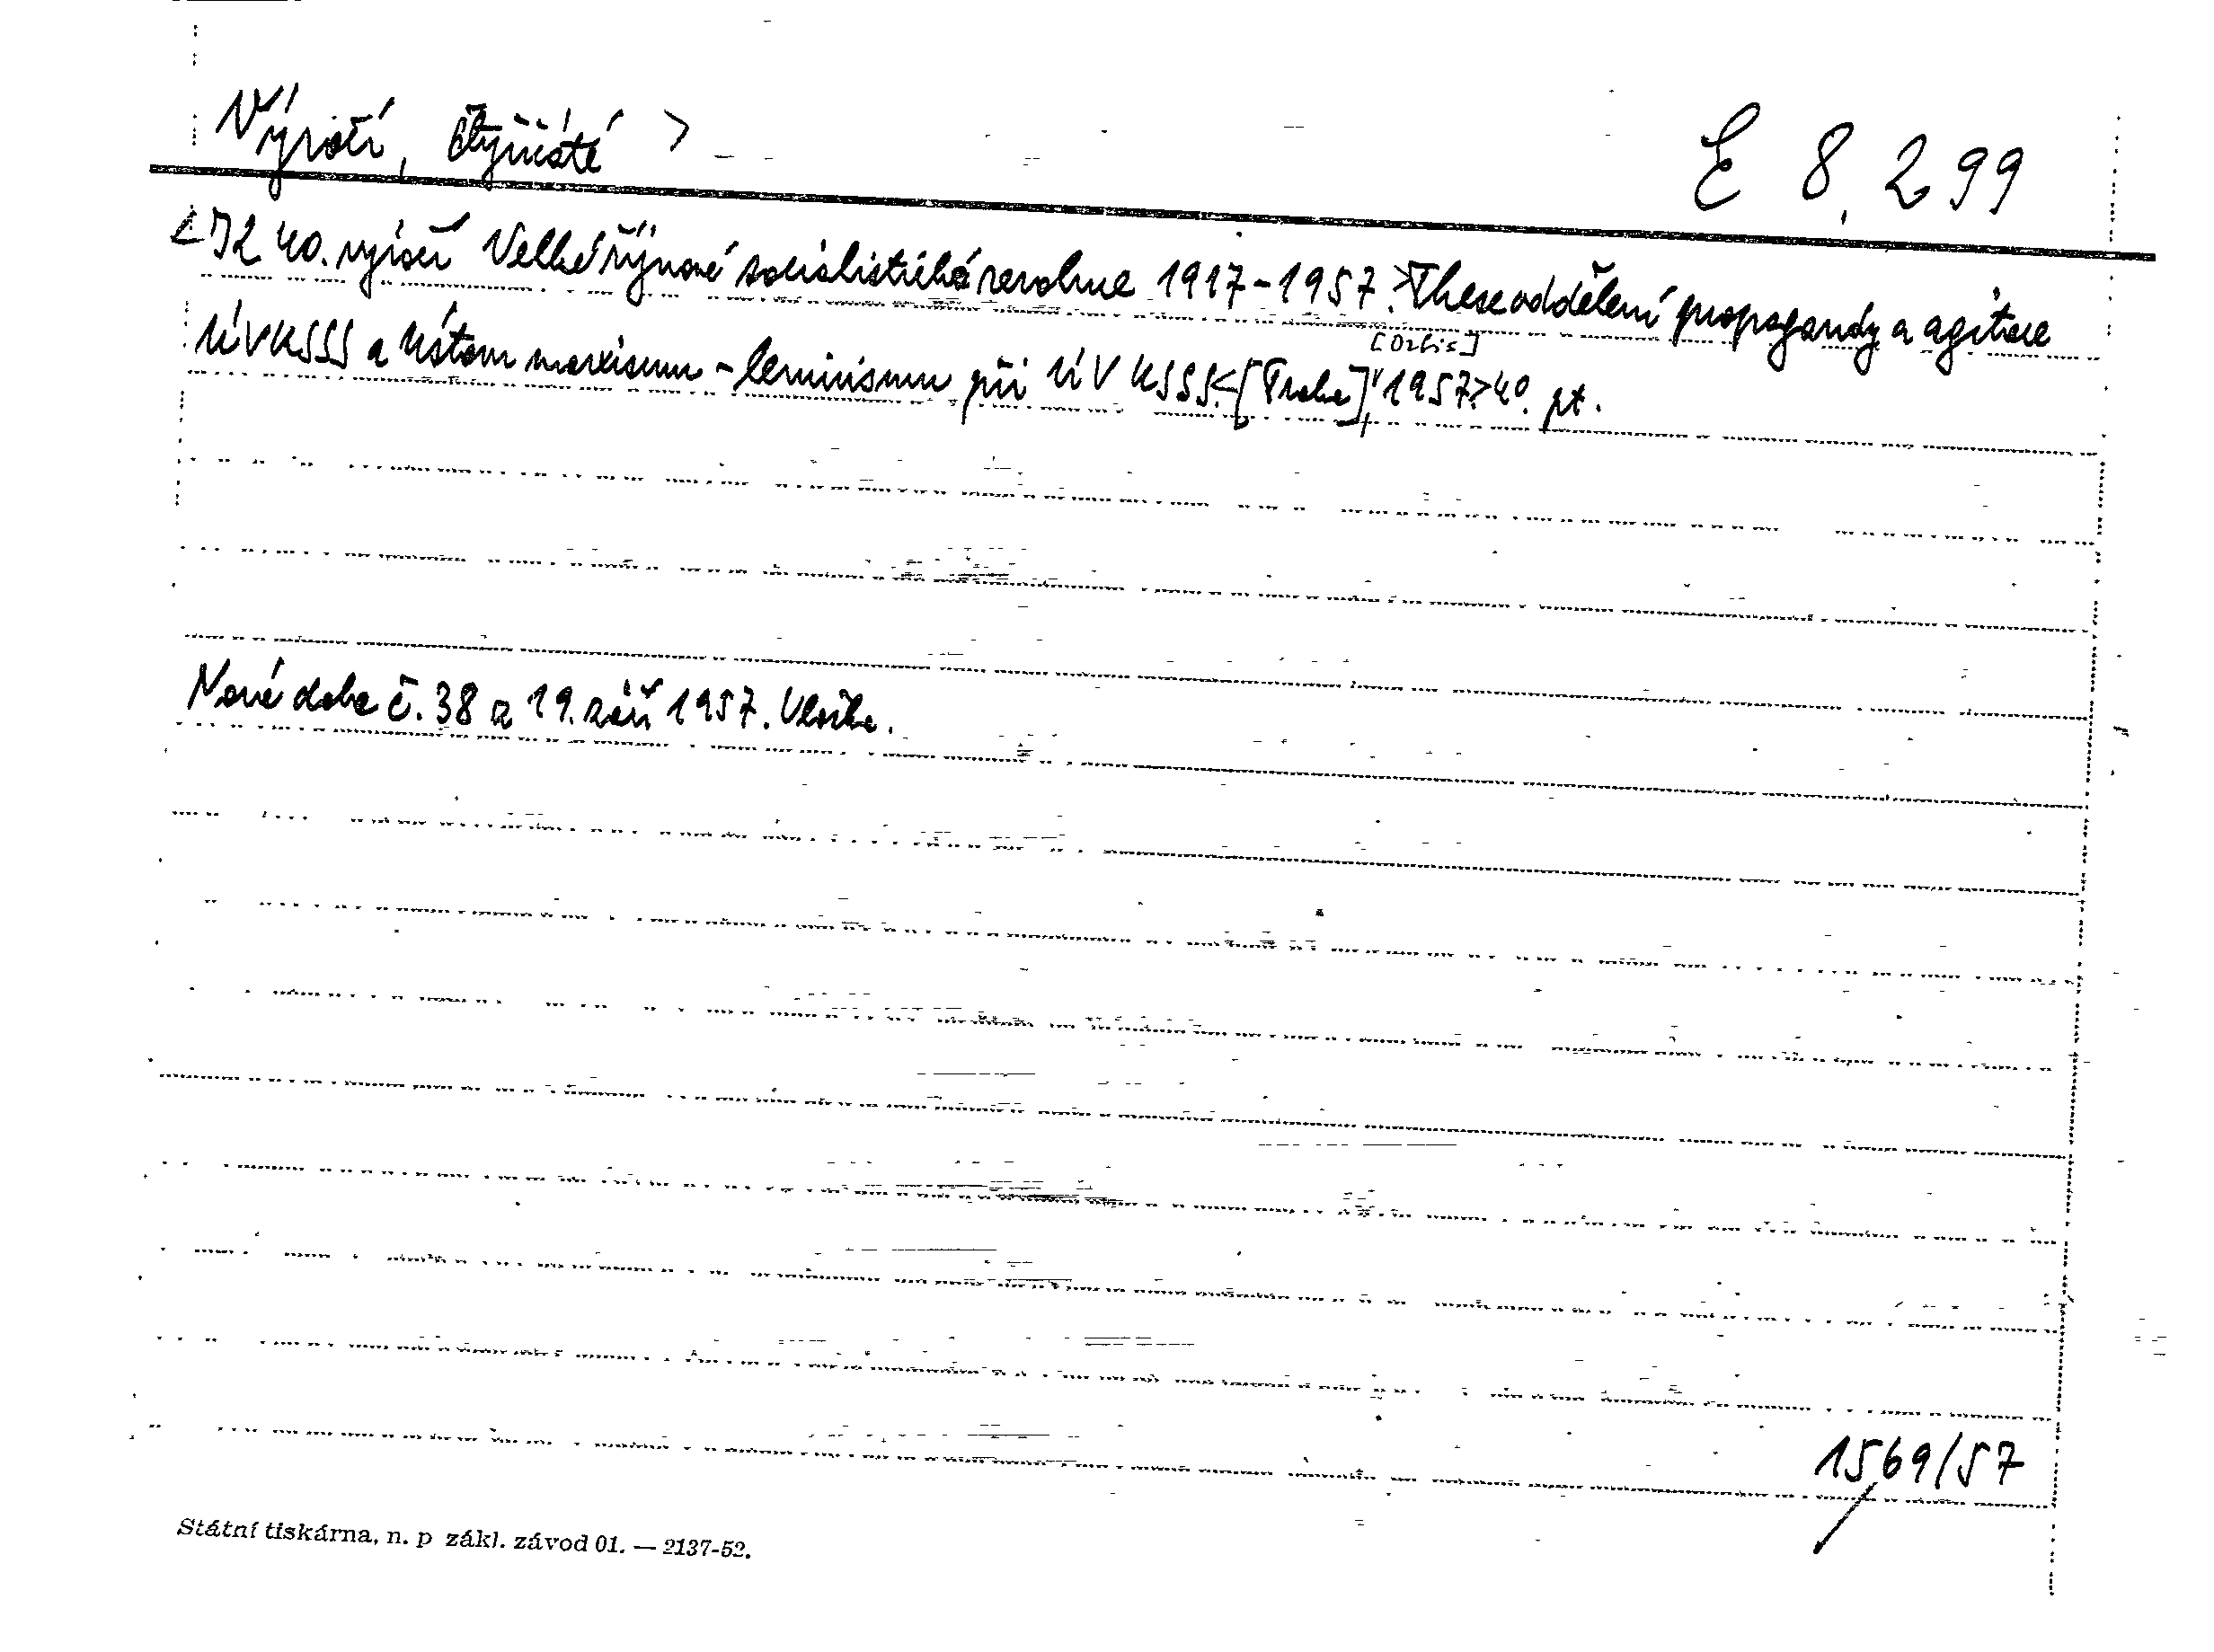 Výročí, čtyřicáté >
E 8.299
<K 40. výročí Velké říjnové socialistické revoluce 1917-1957.> These oddělení propagandy a agitace
[Orbis]
ÚV KSSS a Ústavu marxismu-leninismu při ÚV KSSS. <[Praha], 1957.> 40. pt.
Nová doba č. 38 z 19. září 1957. Vložka.
1569/57
Státní tiskárna, n. p základ. závod 01. — 2137-52.